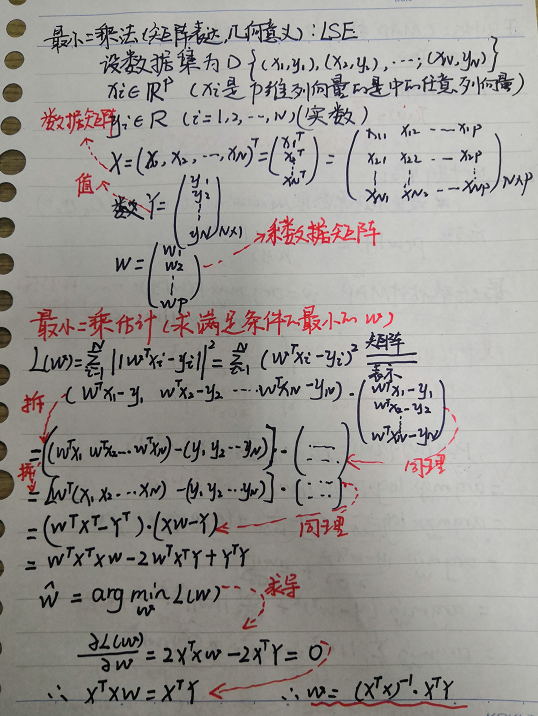 最小二乘法(矩阵表达,几何意义): LSE
设数据集为D {(x₁,y₁), (x₂,y₂), ⋯, (x_N,y_N)}
xi∈ℝᵖ (xi是p维列向量 是 中的任意列向量)
数据矩阵 yi∈R (i=1,2,⋯,N)(实数)
X=(x₁,x₂,⋯,x_N)ᵀ=(x₁ᵀ x₂ᵀ ⋮ x_Nᵀ)=(x₁₁ x₁₂ ⋯ x₁p x₂₁ x₂₂ ⋯ x₂p ⋮ ⋮ ⋮ x_N₁ x_N₂ ⋯ x_Np)N×p
值
数 Y=(y₁ y₂ ⋮ y_N)N×1
W=(w₁ w₂ ⋮ wp) 系数数据矩阵
最小二乘估计(求满足条件的最小的w)
L(w)=∑ᵢ₌₁ᴺ||wᵀxi-yi||²=∑ᵢ₌₁ᴺ(wᵀxi-yi)² 矩阵 表示
拆 (wᵀx₁-y₁ wᵀx₂-y₂ ⋯ wᵀx_N-y_N)·(wᵀx₁-y₁ wᵀx₂-y₂ ⋮ wᵀx_N-y_N)
=[(wᵀx₁ wᵀx₂⋯wᵀx_N)-(y₁ y₂⋯y_N)]·(⋯ ⋯) 同理
拆
=[wᵀ(x₁ x₂⋯x_N)-(y₁ y₂⋯y_N)]·(⋯ ⋯)
=(wᵀXᵀ-Yᵀ)·(XW-Y) 同理
=wᵀXᵀXW-2wᵀXᵀY+YᵀY
ŵ=arg min_w L(w) 求导
∂L(w)/∂w=2XᵀXw-2XᵀY=0
∴ XᵀXW=XᵀY ∴ w=(XᵀX)⁻¹·XᵀY